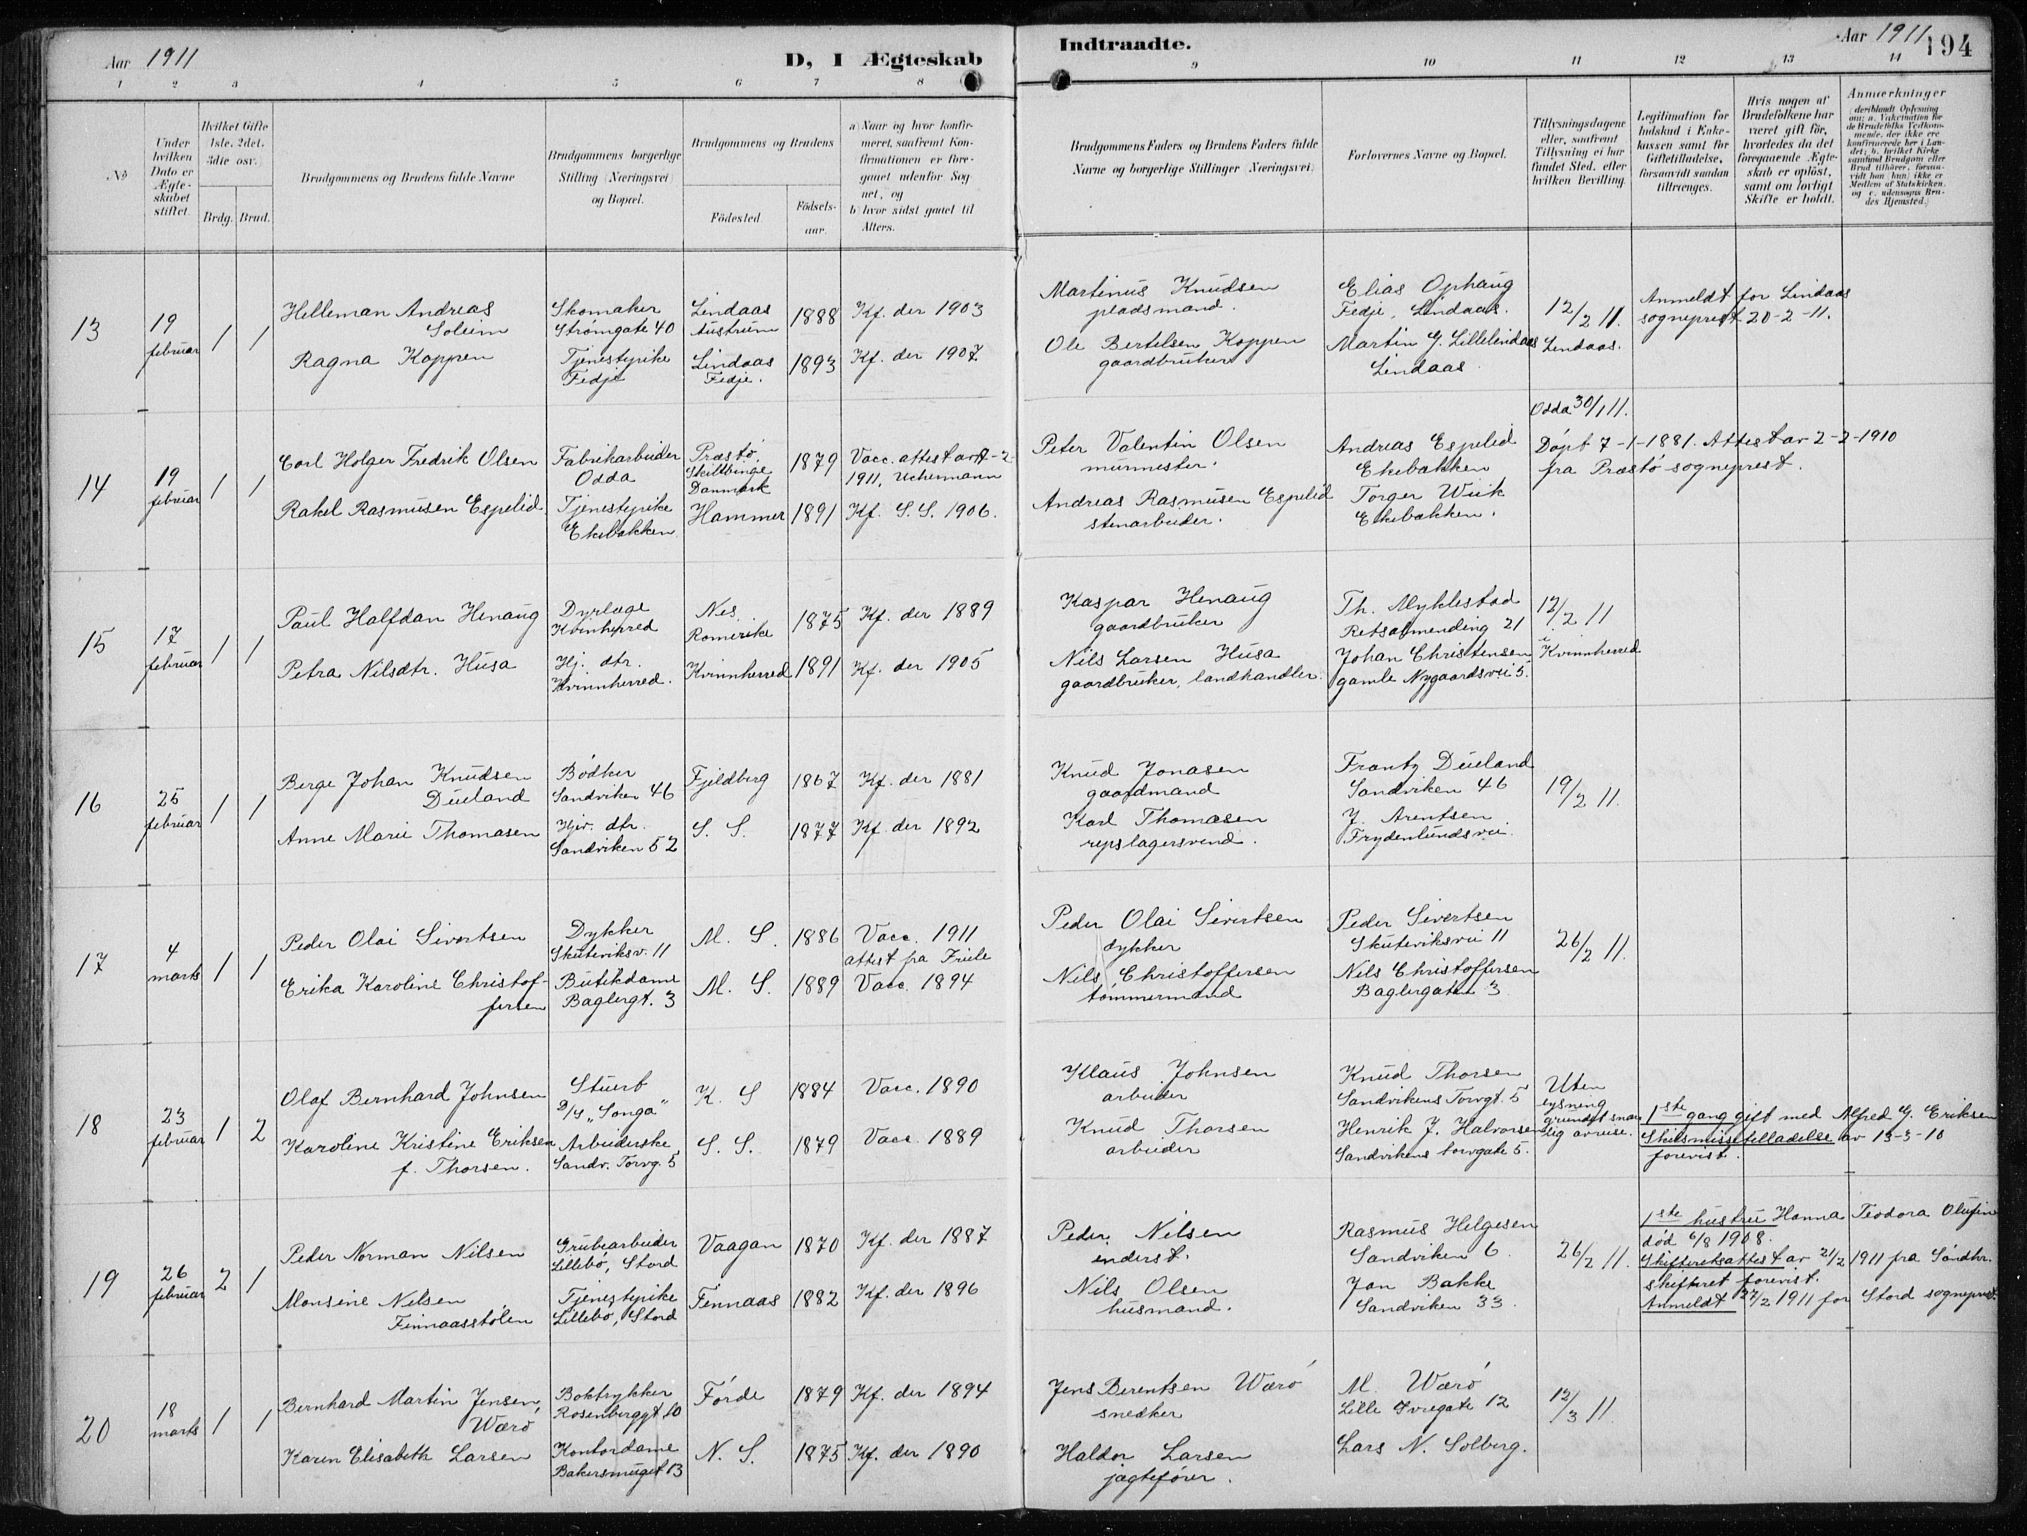 Aar 1911
D, I Ægteskab
Indtraadte.
Aar 1911.
194
1 2 3 4 5 6 7 8 9 10 11 12 13 14
No
Under hvilken Dato er Ægteskabet stiftet.
Hvilket Gifte 1ste. 2det. 3die osv.
Brdg. Brud.
Brudgommens og Brudens fulde Navne
Brudgommens borgerlige Stilling (Næringsvei) og Bopæl.
Brudgommens og Brudens
Fødested.
Fødselsaar.
a) Naar og hvor konfirmeret, saafremt Konfirmationen er foregaaet udenfor Sognet, og
b) hvor sidst gaaet til Alters.
Brudgommens Faders og Brudens Faders fulde Navne og borgerlige Stillinger (Næringsvei)
Forlovernes Navne og Bopæl.
Tillysningsdagene eller, saafremt Tillysning ei har fundet Sted, efter hvilken Bevilling.
Legitimation for Indskud i Enkekassen samt for Giftetilladelse, forsaavidt saadan tiltrænges.
Hvis nogen af Brudefolkene har været gift før, hvorledes da det foregaaende Ægteskab er opløst, samt om lovligt Skifte er holdt.
Anmærkninger (deriblandt Oplysning om: a. Vakcination for de Brudefolks Vedkommende, der ikke ere konfirmerede her i Landet; b. hvilket Kirkesamfund Brudgom eller Brud tilhører, forsaavidt han (hun) ikke er Medlem af Statskirken, og c. udensogns Brudes Hjemsted.)
13
19 februar
1 1
Helleman Andreas Soleim
Skomaker
Strømgate 40
Lindaas
Austrum
1888
Kf. der 1903
Martinus Knudsen
pladsmand.
Elias Ophaug
Fedje, Lindaas.
12/2 11.
Anmeldt for Lindaas
sogneprest 20-2-11.
Ragna Koppen
Tjenestepike
Fedje
Lindaas
Fedje.
1893
Kf. der 1907
Ole Bertelsen Koppen
gaardbruker
Martin G. Lillelindaas
Lindaas
Lindaas.
14
19 februar
1 1
Carl Holger Fredrik Olsen
Fabrikarbeider
Odda
Præstø,
Skibbinge
Danmark
1879
Vacc. attest av
1911, Uchermann
Peter Valentin Olsen
murmester.
Andreas Espelid
Ekebakken
Odda 30/1 11.
Døpt 7-1-1881. Attest av 2-2-1910
fra Præstø sogneprest.
Rakel Rasmusen Espelid
Tjenestepike
Ekebakken
Hammer
1891
Kf. S. S. 1906.
Andreas Rasmusen Espelid
stenarbeider.
Torger Wiik
Ekebakken.
15
17 februar
1 1
Paul Halfdan Henaug
Dyrlæge
Kvinherred
Nes,
Romerike
1875
Kf. der 1889
Kaspar Henaug
gaardbruker
Th. Myklestad
Retsalmending 21
12/2 11
i Kvinnherred
Petra Nilsdtr. Husa
Hj. dtr.
Kvinnherred.
Kvinnherred
1891
Kf. der 1905
Nils Larsen Husa
gaardbruker, landhandler.
Johan Christensen
gamle Nygaardsvei 5.
16
25 februar
1 1
Berge Johan Knudsen
Dueland
Bødker
Sandviken 46
Fjeldberg
1867
Kf. der 1881
Knud Jonasen
gaardmand
Frantz Dueland
Sandviken 46
19/2 11.
Anne Marie Thomasen
Hjv. dtr.
Sandviken 52
S. S.
1877
Kf. der 1892
Karl Thomasen
repslagersvend.
J. Arentsen
Frydenlundsvei.
17
4 marts
1 1
Peder Olai Sivertsen
Dykker
Skuteviksv. 11
M. S.
1886
Vacc. 1911
attest fra Friele
Peder Olai Sivertsen
dykker
Peder Sivertsen
Skuteviksvei 11
26/2 11.
Erika Karoline Christoffersen
Butikdame
Baglergt. 3
M. S.
1889
Vacc. 1894
Nils Christoffersen
tømmermand
Nils Christoffersen
Baglergaten 3
18
23 februar
1 2
Olaf Bernhard Johnsen
Stuert
D/S "Songa"
K. S
1884
Vacc. 1890
Klaus Johnsen
arbeider
Knud Thorsen
Sandvikens Torvgt. 5
Uten lysning grundet snarlig avreise.
1ste gang gift med Alfred G. Eriksen
Skilsmissetilladelse av 13-3-10
forevist.
Karoline Kristine Eriksen
f. Thorsen.
Arbeiderske
Sandv. Torvg. 5
S. S.
1879
Vacc 1889
Knud Thorsen
arbeider
Henrik J. Halvorsen
Sandvikens torvgate 5.
19
26 februar
2 1
Peder Norman Nilsen
Grubearbeider
Lillebø, Stord
Vaagan
1870
Kf. der 1887
Peder Nilsen
enderst.
Rasmus Helgesen
Sandviken 6.
26/2 11.
1ste hustru Hanna Teodora Olufine
død 6/8 1908.
Skifteretsattest av 21/2 1911 fra Søndhr.
skifteret forevist.
Anmeldt 27/2 1911 for Stord sogneprest.
Monsine Nilsen
Finnaasstølen
Tjenestepike
Lillebø, Stord
Finnaas
1882
Kf. der 1896
Nils Olsen
husmand.
Jan Bakke
Sandviken 33.
20
18 marts
1 1
Bernhard Martin Jensen,
Wærø
Boktrykker
Rosenberggt. 10
Førde
1879
Kf. der 1894
Jens Berentsen Wærø
snedker
M. Wærø
Lille Øvregate 12
12/3 11.
Karen Elisabeth Larsen
Kontordame
Bakersmuget 13
N. S.
1875
Kf. der 1890
Haldor Larsen
jægtefører.
Lars N. Solberg.